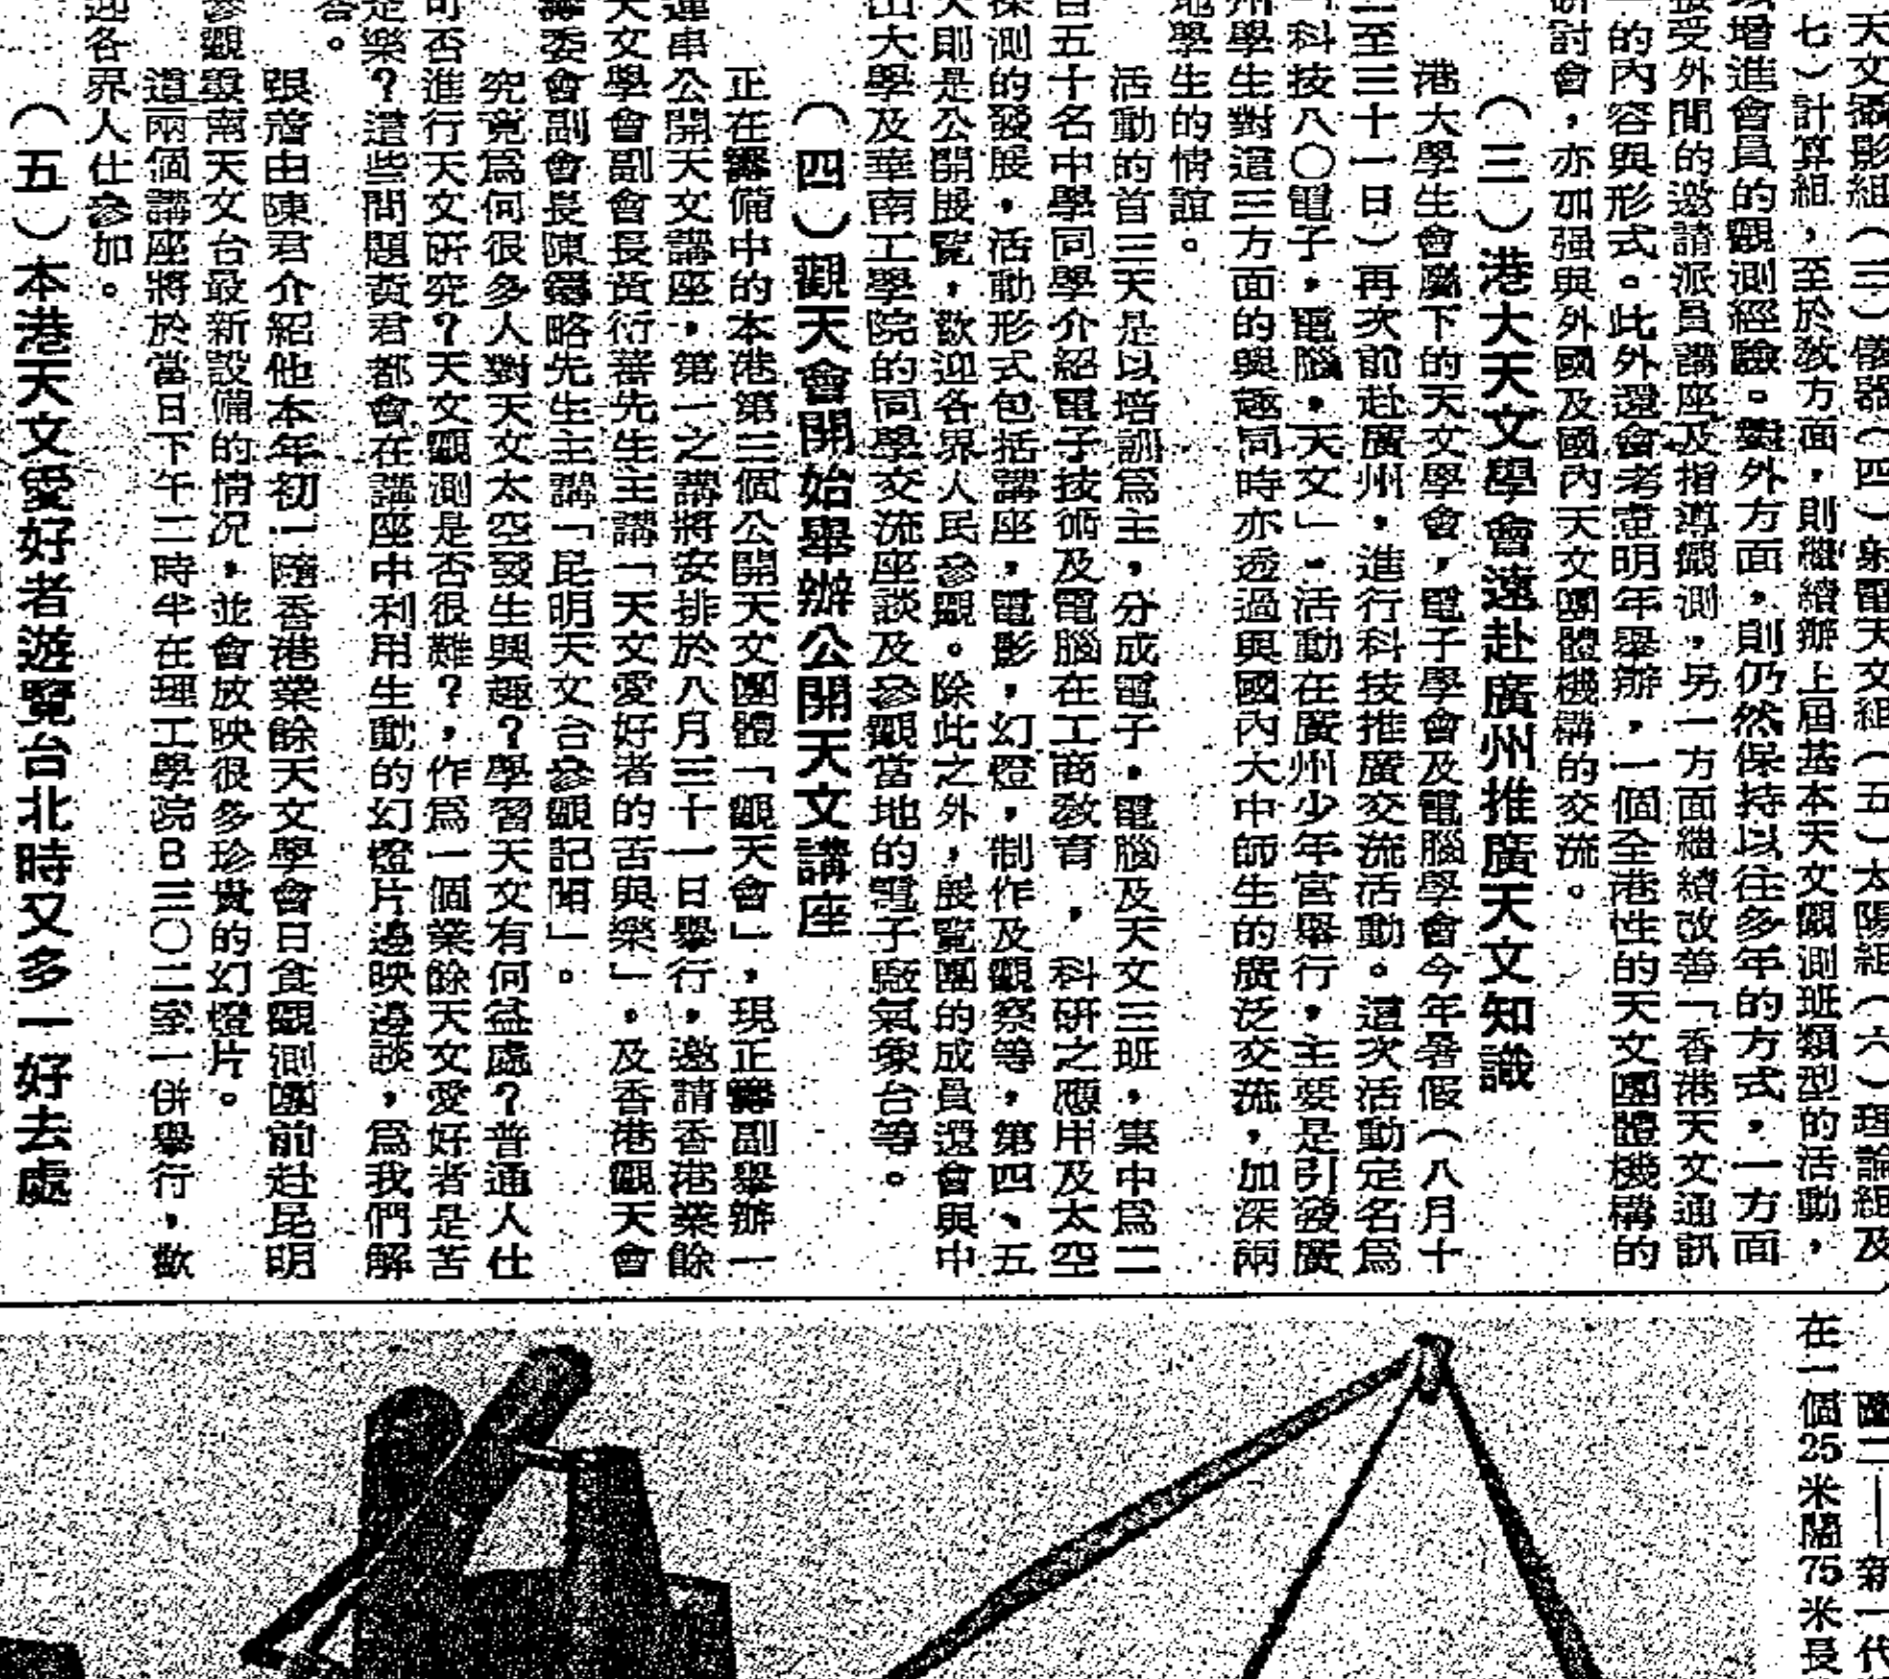 天文攝影組（三）儀器（四）射電天文組（五）太陽組（六）理論組及
七）計算組，至於教方面，則繼續辦上屆基本天文觀測班類型的活動，
增進會員的觀測經驗。對外方面，則仍然保持以往多年的方式，一方面
接受外間的邀請派員講座及指導觀測，另一方面繼續改善「香港天文通訊
的內容與形式。此外還會考慮明年舉辦，一個全港性的天文團體機構的
研討會，亦加强與外國及國內天文團體機構的交流。
（三）港大天文學會遠赴廣州推廣天文知識
港大學生會屬下的天文學會，電子學會及電腦學會今年暑假（八月十
二至三十一日）再次前赴廣州，進行科技推廣交流活動。這次活動定名爲
科技八〇電子，電腦，天文」，活動在廣州少年宮舉行，主要是引發廣
州學生對這三方面的興趣同時亦透過與國內大中師生的廣泛交流，加深兩
地學生的情誼。
活動的首三天是以培訓爲主，分成電子，電腦及天文三班，集中爲二
百五十名中學同學介紹電子技術及電腦在工商敎育，科研之應用及太空
探測的發展，活動形式包括講座，電影，幻燈，制作及觀察等，第四、五
天則是公開展覽，歡迎各界人民參觀。除此之外，展覽團的成員還會與中
山大學及華南工學院的同學交流座談及參觀當地的電子廠氣象台等。
（四）觀天會開始舉辦公開天文講座
正在籌備中的本港第三個公開天文團體「觀天會」，現正籌副舉辦一
連串公開天文講座，第一之講將安排於八月三十一日舉行，邀請香港業餘
天文學會副會長黃衍蕃先生主講「天文愛好者的苦與樂」，及香港觀天會
籌委會副會長陳略先生主講「昆明天文台參觀記聞」。
究竟爲何很多人對天文太空發生興趣？學習天文有何益處？普通人仕
可否進行天文研究？天文觀測是否很難？，作爲一個業餘天文愛好者是苦
是樂？這些問題黃君都會在講座中利用生動的幻燈片邊映邊談，爲我們解
答。
跟着由陳君介紹他本年初一隨香港業餘天文學會日食觀測團前赴昆明
參觀雲南天文台最新設備的情况，並會放映很多珍貴的幻燈片。
這兩個講座將於當日下午二時半在理工學院B三〇二室一併舉行，歡
迎各界人仕參加。
（五）本港天文愛好者遊覽台北時又多一好去處
圖二——新一代
在一個25米闊75米長